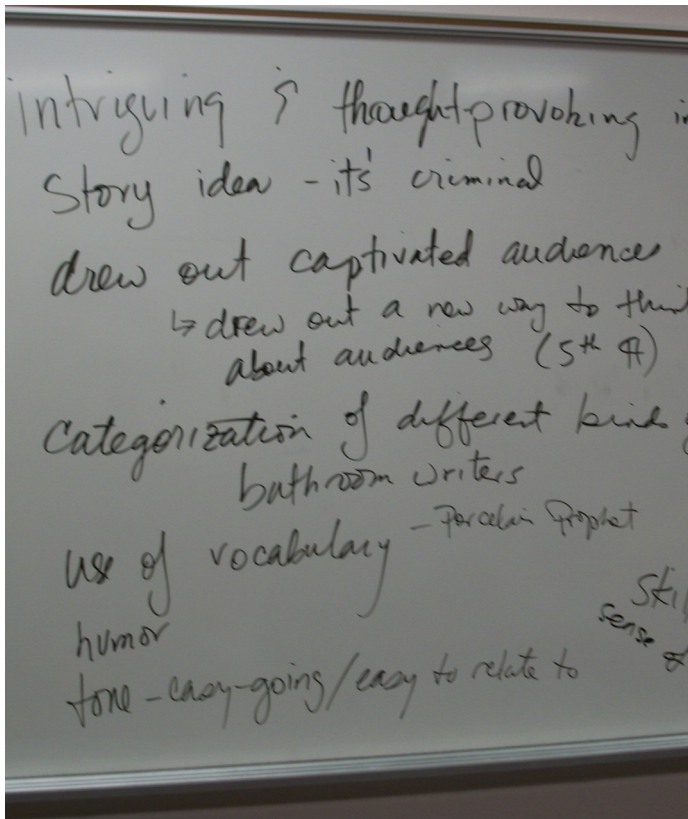 intriguing & thought-provoking in
story idea - it's criminal
drew out captivated audiences
↳ drew out a new way to think
about audiences (5th ¶)
categorization of different kinds
bathroom writers
use of vocabulary - Porcelain Prophet
humor
tone - easy-going/easy to relate to
sense of